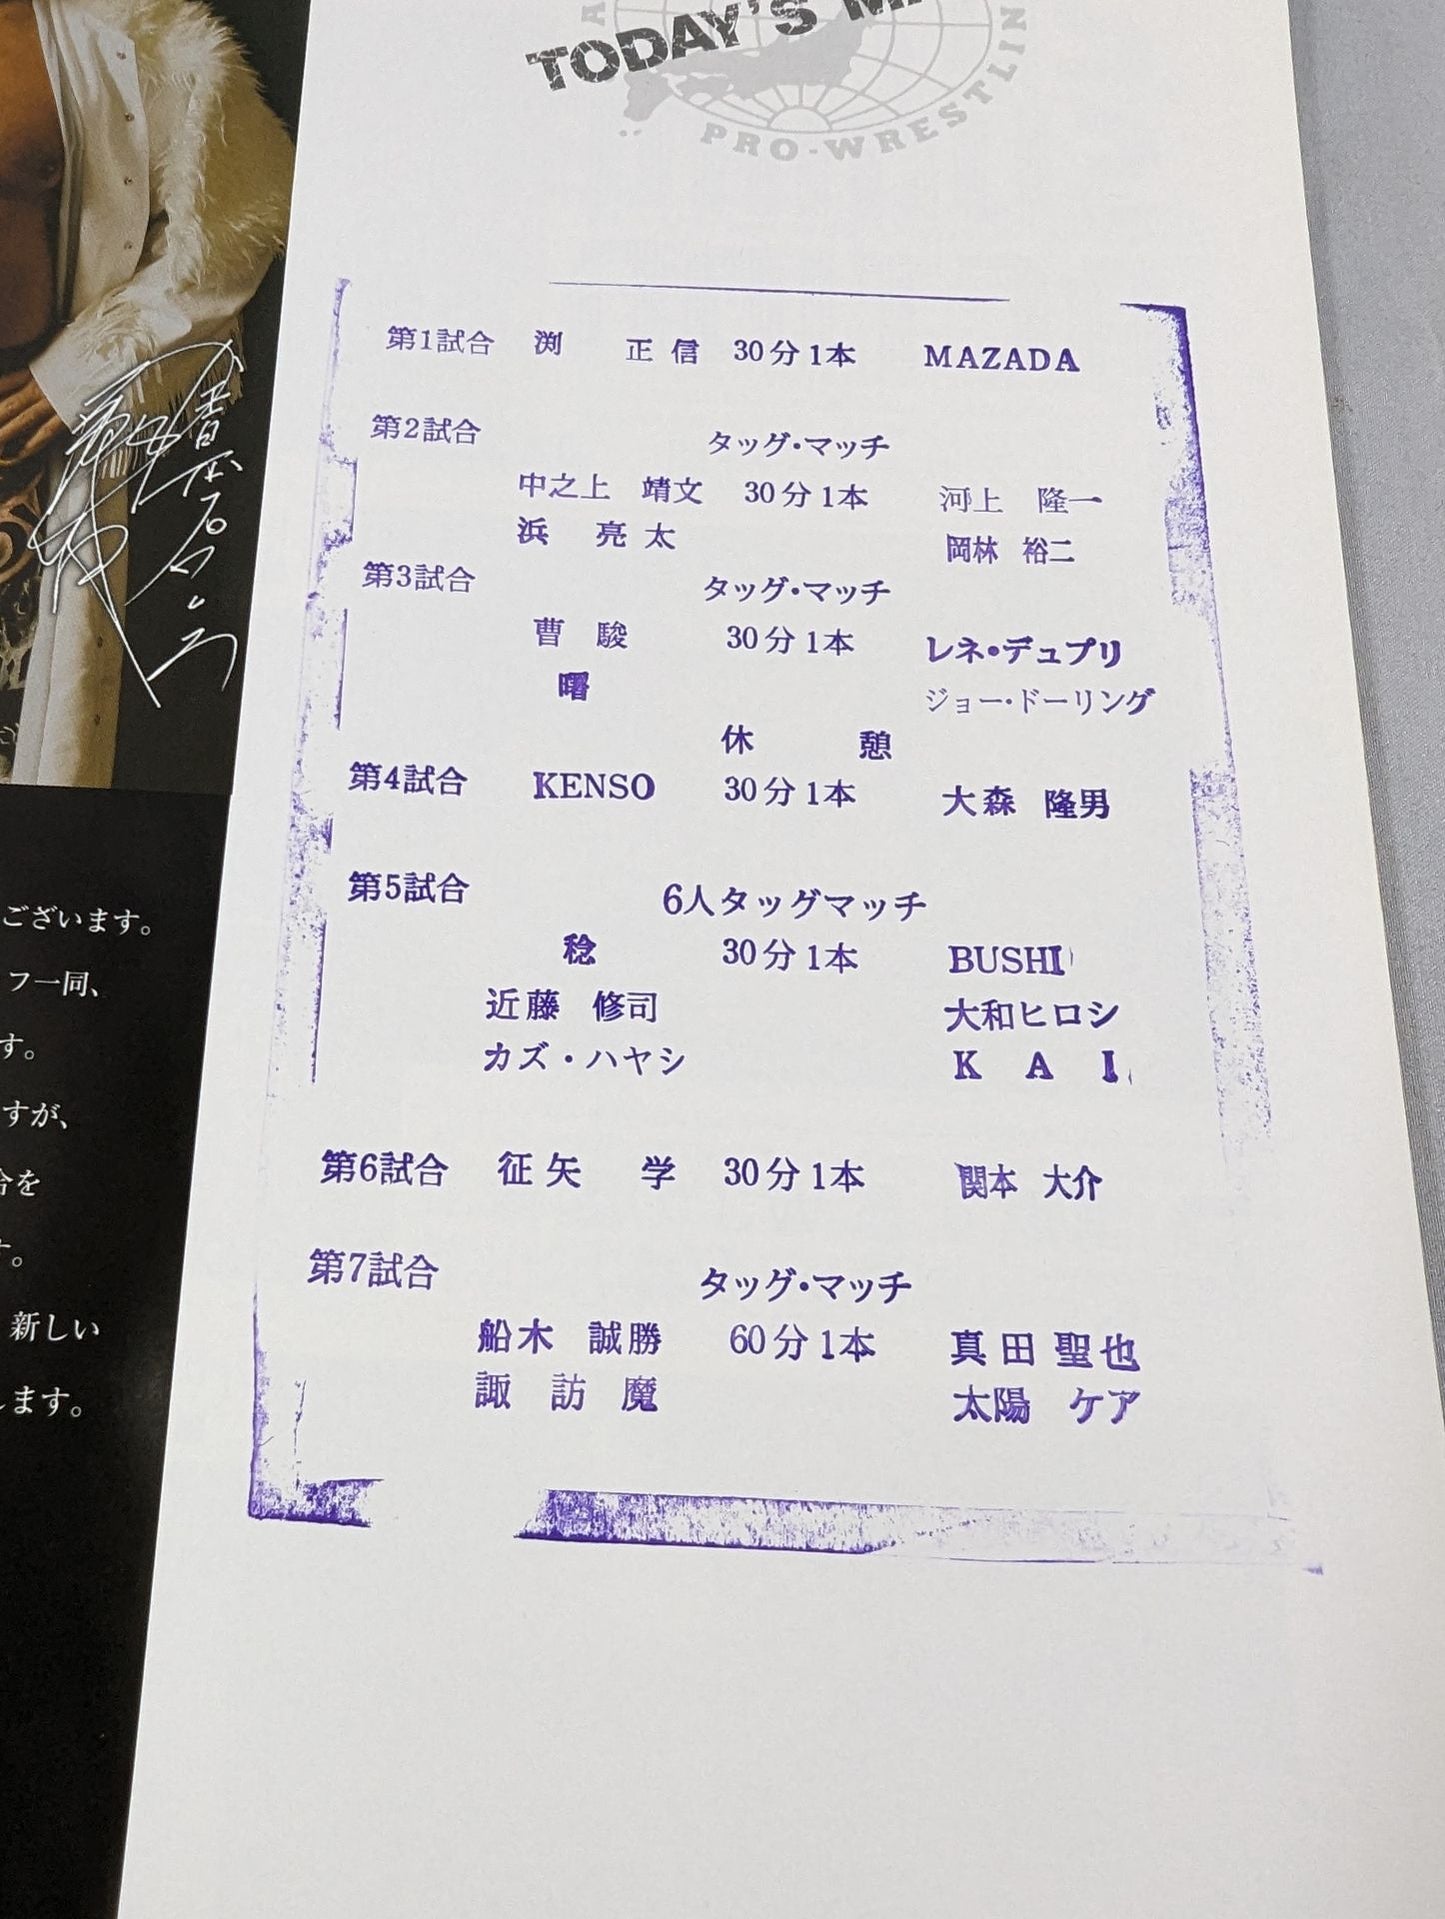 TODAY'S
PRO-WRESTLIN
第1試合 渕 正信 30分1本 MAZADA
第2試合 タッグ・マッチ
中之上 靖文 30分1本 河上 隆一
浜 亮太 岡林 裕二
第3試合 タッグ・マッチ
曹 駿 30分1本 レネ・デュプリ
曙 ジョー・ドーリング
休 憩
第4試合 KENSO 30分1本 大森 隆男
第5試合 6人タッグマッチ
稔 30分1本 BUSHI
近藤 修司 大和ヒロシ
カズ・ハヤシ K A I
第6試合 征矢 学 30分1本 関本 大介
第7試合 タッグ・マッチ
船木 誠勝 60分1本 真田聖也
諏訪魔 太陽 ケア
ございます。
フ一同、
す。
すが、
を
す。
新しい
します。